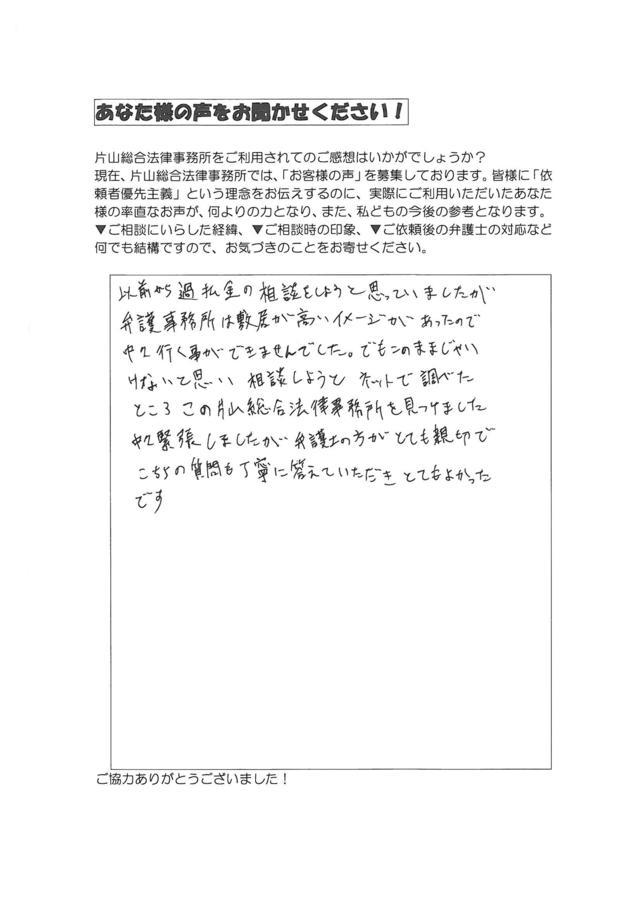 あなた様の声をお聞かせください！
片山総合法律事務所をご利用されてのご感想はいかがでしょうか？
現在、片山総合法律事務所では、「お客様の声」を募集しております。皆様に「依
頼者優先主義」という理念をお伝えするのに、実際にご利用いただいたあなた
様の率直なお声が、何よりの力となり、また、私どもの今後の参考となります。
▼ご相談にいらした経緯、▼ご相談時の印象、▼ご依頼後の弁護士の対応など
何でも結構ですので、お気づきのことをお寄せください。
以前から過払金の相談をしようと思っていましたが
弁護事務所は敷居が高いイメージがあったので
中々行く事ができませんでした。でもこのままじゃい
けないと思い 相談しようと ネットで調べた
ところ この片山総合法律事務所を見つけました
中々緊張しましたが 弁護士の方がとても親切で
こちらの質問も丁寧に答えていただき とてもよかった
です
ご協力ありがとうございました！